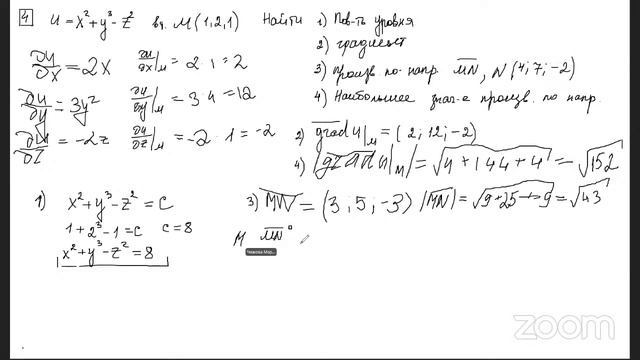 4 u = x² + y³ - z² в т. M(1,2,1) Найти 1) Пов-ть уровня
2) градиент
3) произв. по напр. MN, N(4;7;-2)
4) Наибольшее знач-е произв. по напр.
∂u/∂x = 2x ∂u/∂x|M = 2·1 = 2
∂u/∂y = 3y² ∂u/∂y|M = 3·4 = 12
∂u/∂z = -2z ∂u/∂z|M = -2·1 = -2
2) grad u|M = (2; 12; -2)
4) |grad u|M| = √4+144+4 = √152
1) x² + y³ - z² = C
1 + 2³ - 1 = C C = 8
x² + y³ - z² = 8
3) MN = (3; 5; -3) |MN| = √9+25+9 = √43
M MN°
zoom